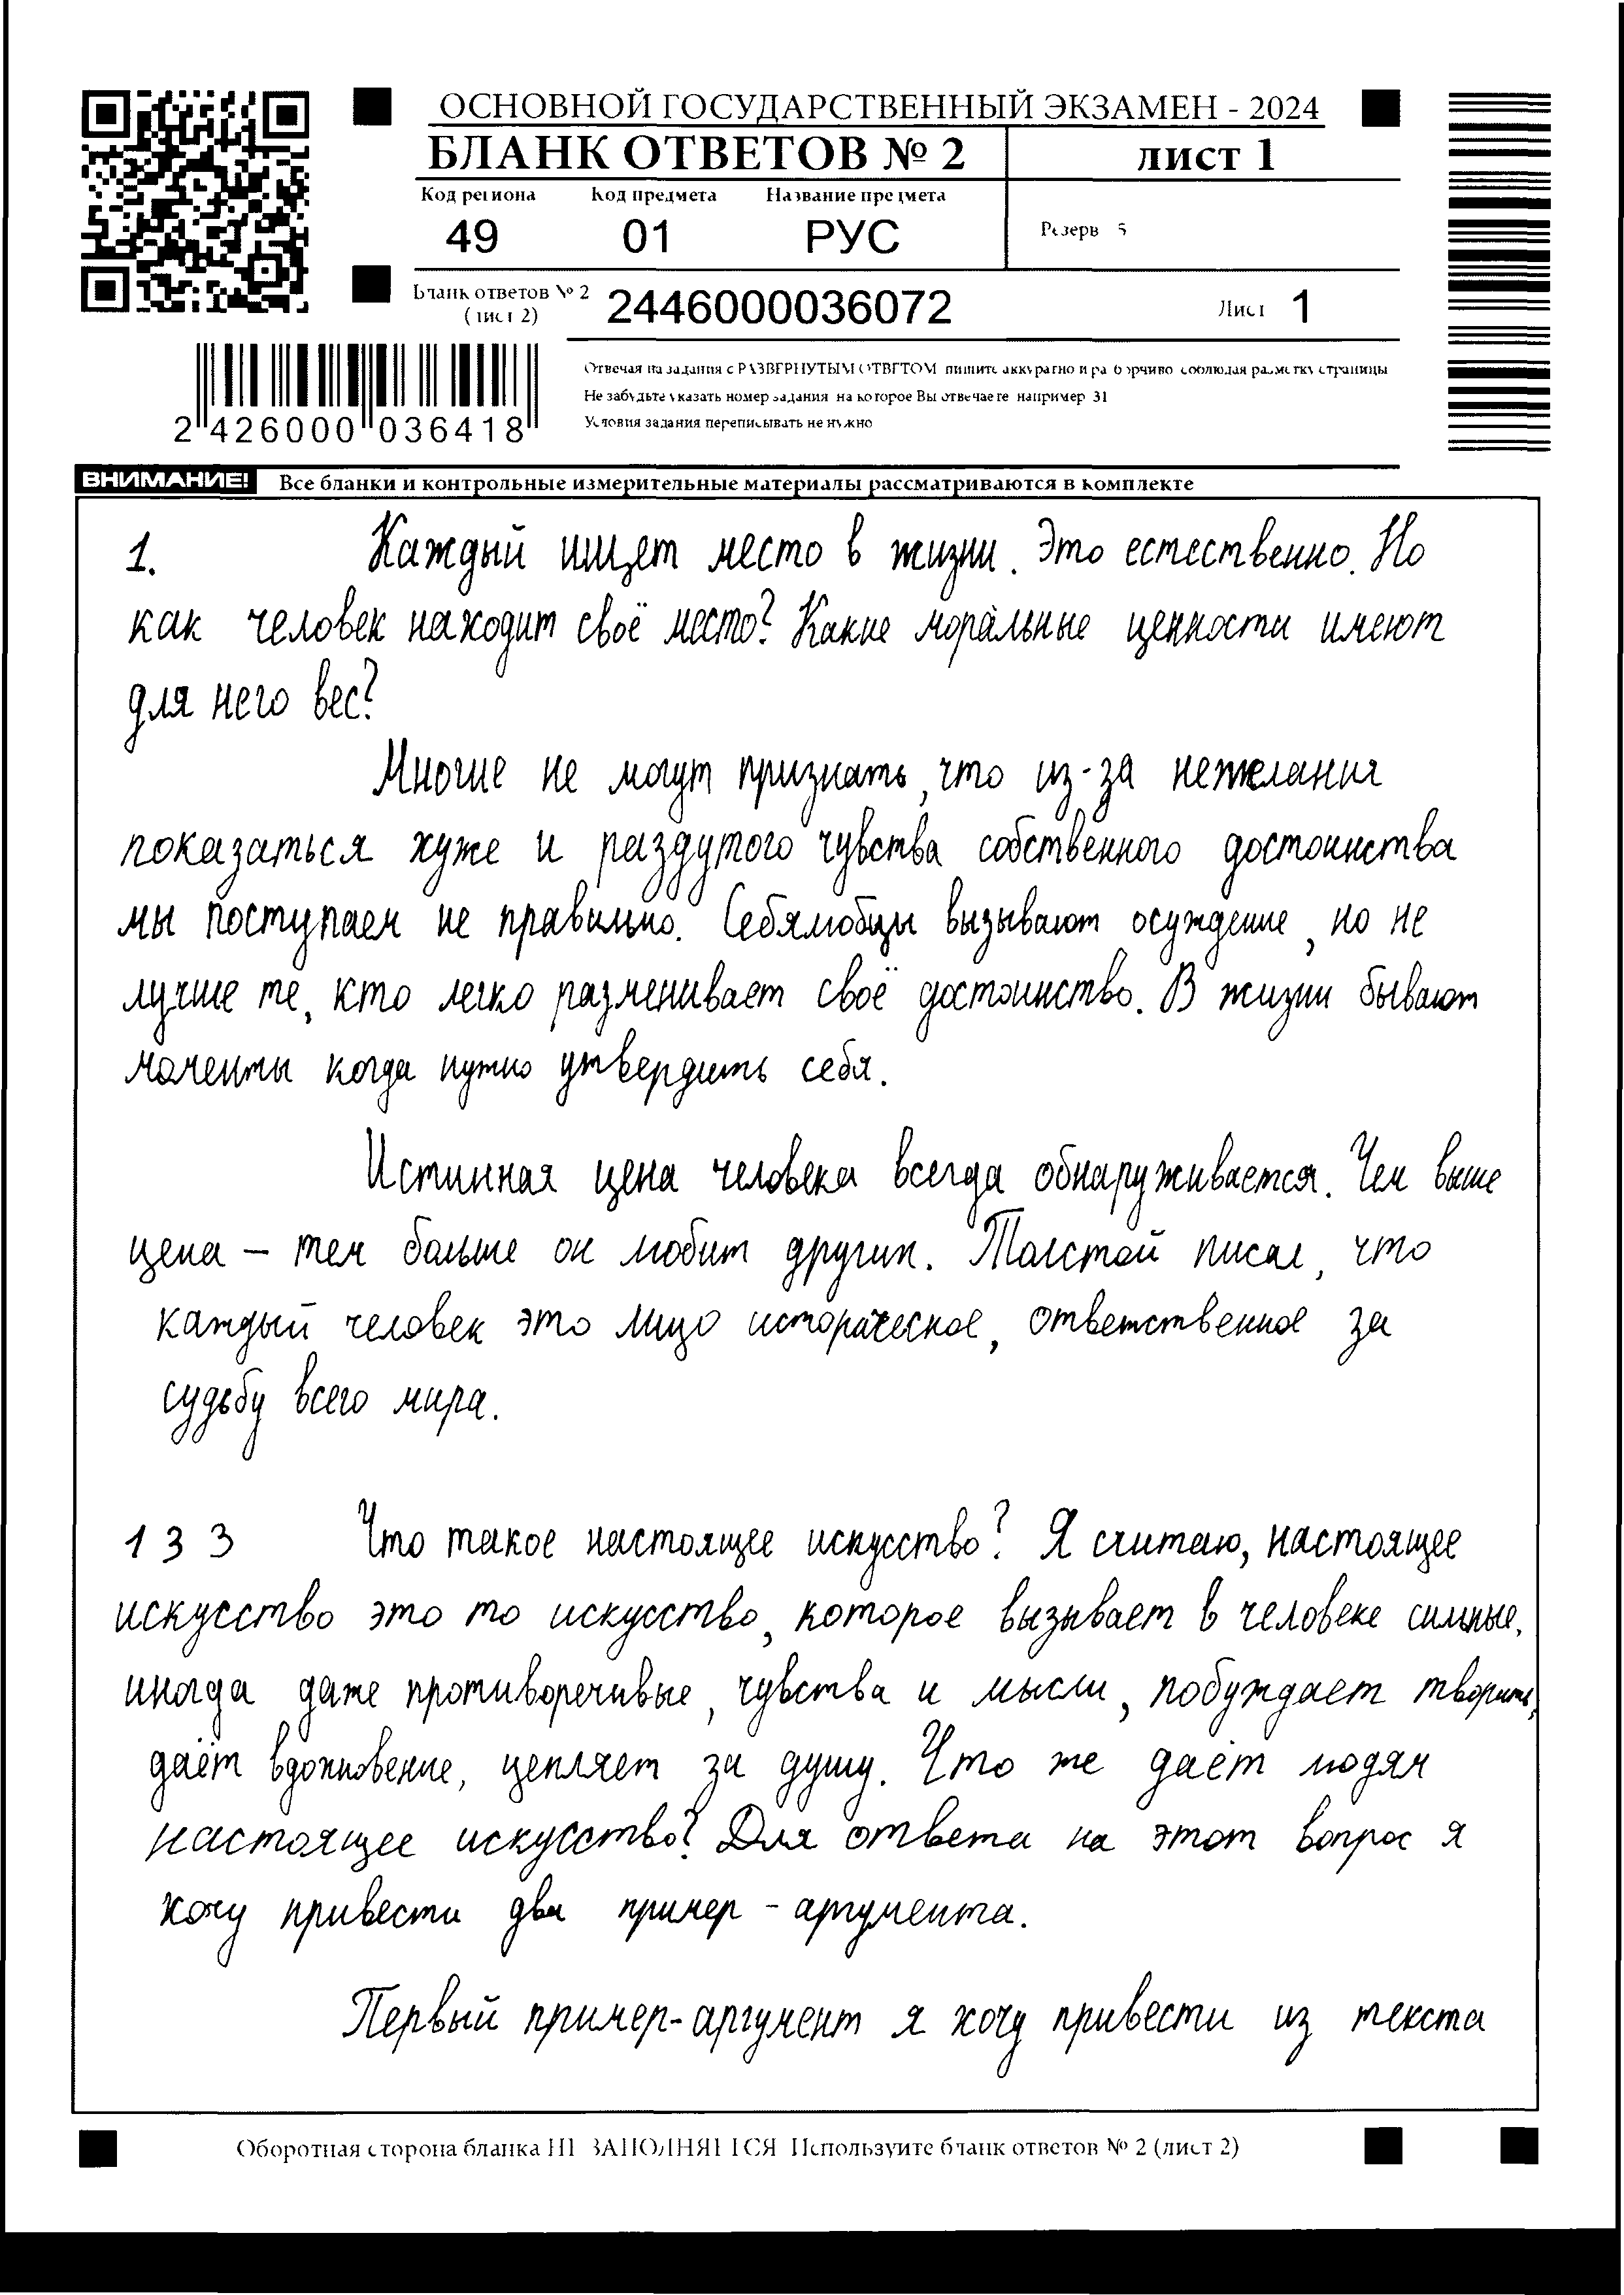 ОСНОВНОЙ ГОСУДАРСТВЕННЫЙ ЭКЗАМЕН - 2024
БЛАНК ОТВЕТОВ № 2
ЛИСТ 1
Код региона Код предмета Название предмета
49 01 РУС
Резерв 5
Бланк ответов № 2
(лист 2)
2446000036072
Лист 1
Отвечая на задания с РАЗВЕРНУТЫМ ОТВЕТОМ пишите аккуратно и разборчиво соблюдая разметку страницы
Не забудьте указать номер задания на которое Вы отвечаете например 31
Условия задания переписывать не нужно
2 426000 036418
ВНИМАНИЕ! Все бланки и контрольные измерительные материалы рассматриваются в комплекте
1. Каждый ищет место в жизни. Это естественно. Но
как человек находит своё место? Какие моральные ценности имеют
для него вес?
Многие не могут признать, что из-за нежелания
показаться хуже и раздутого чувства собственного достоинства
мы поступаем не правильно. Себялюбцы вызывают осуждение, но не
лучше те, кто легко разменивает своё достоинство. В жизни бывают
моменты когда нужно утвердить себя.
Истинная цена человека всегда обнаруживается. Чем выше
цена – тем больше он любит других. Толстой писал, что
каждый человек это лицо историческое, ответственное за
судьбу всего мира.
13 3 Что такое настоящее искусство? Я считаю, настоящее
искусство это то искусство, которое вызывает в человеке сильные,
иногда даже противоречивые, чувства и мысли, побуждает творить,
даёт вдохновение, цепляет за душу. Что же даёт людям
настоящее искусство? Для ответа на этот вопрос я
хочу привести два пример - аргумента.
Первый пример-аргумент я хочу привести из текста
Оборотная сторона бланка НЕ ЗАПОЛНЯЕТСЯ Используйте бланк ответов № 2 (лист 2)